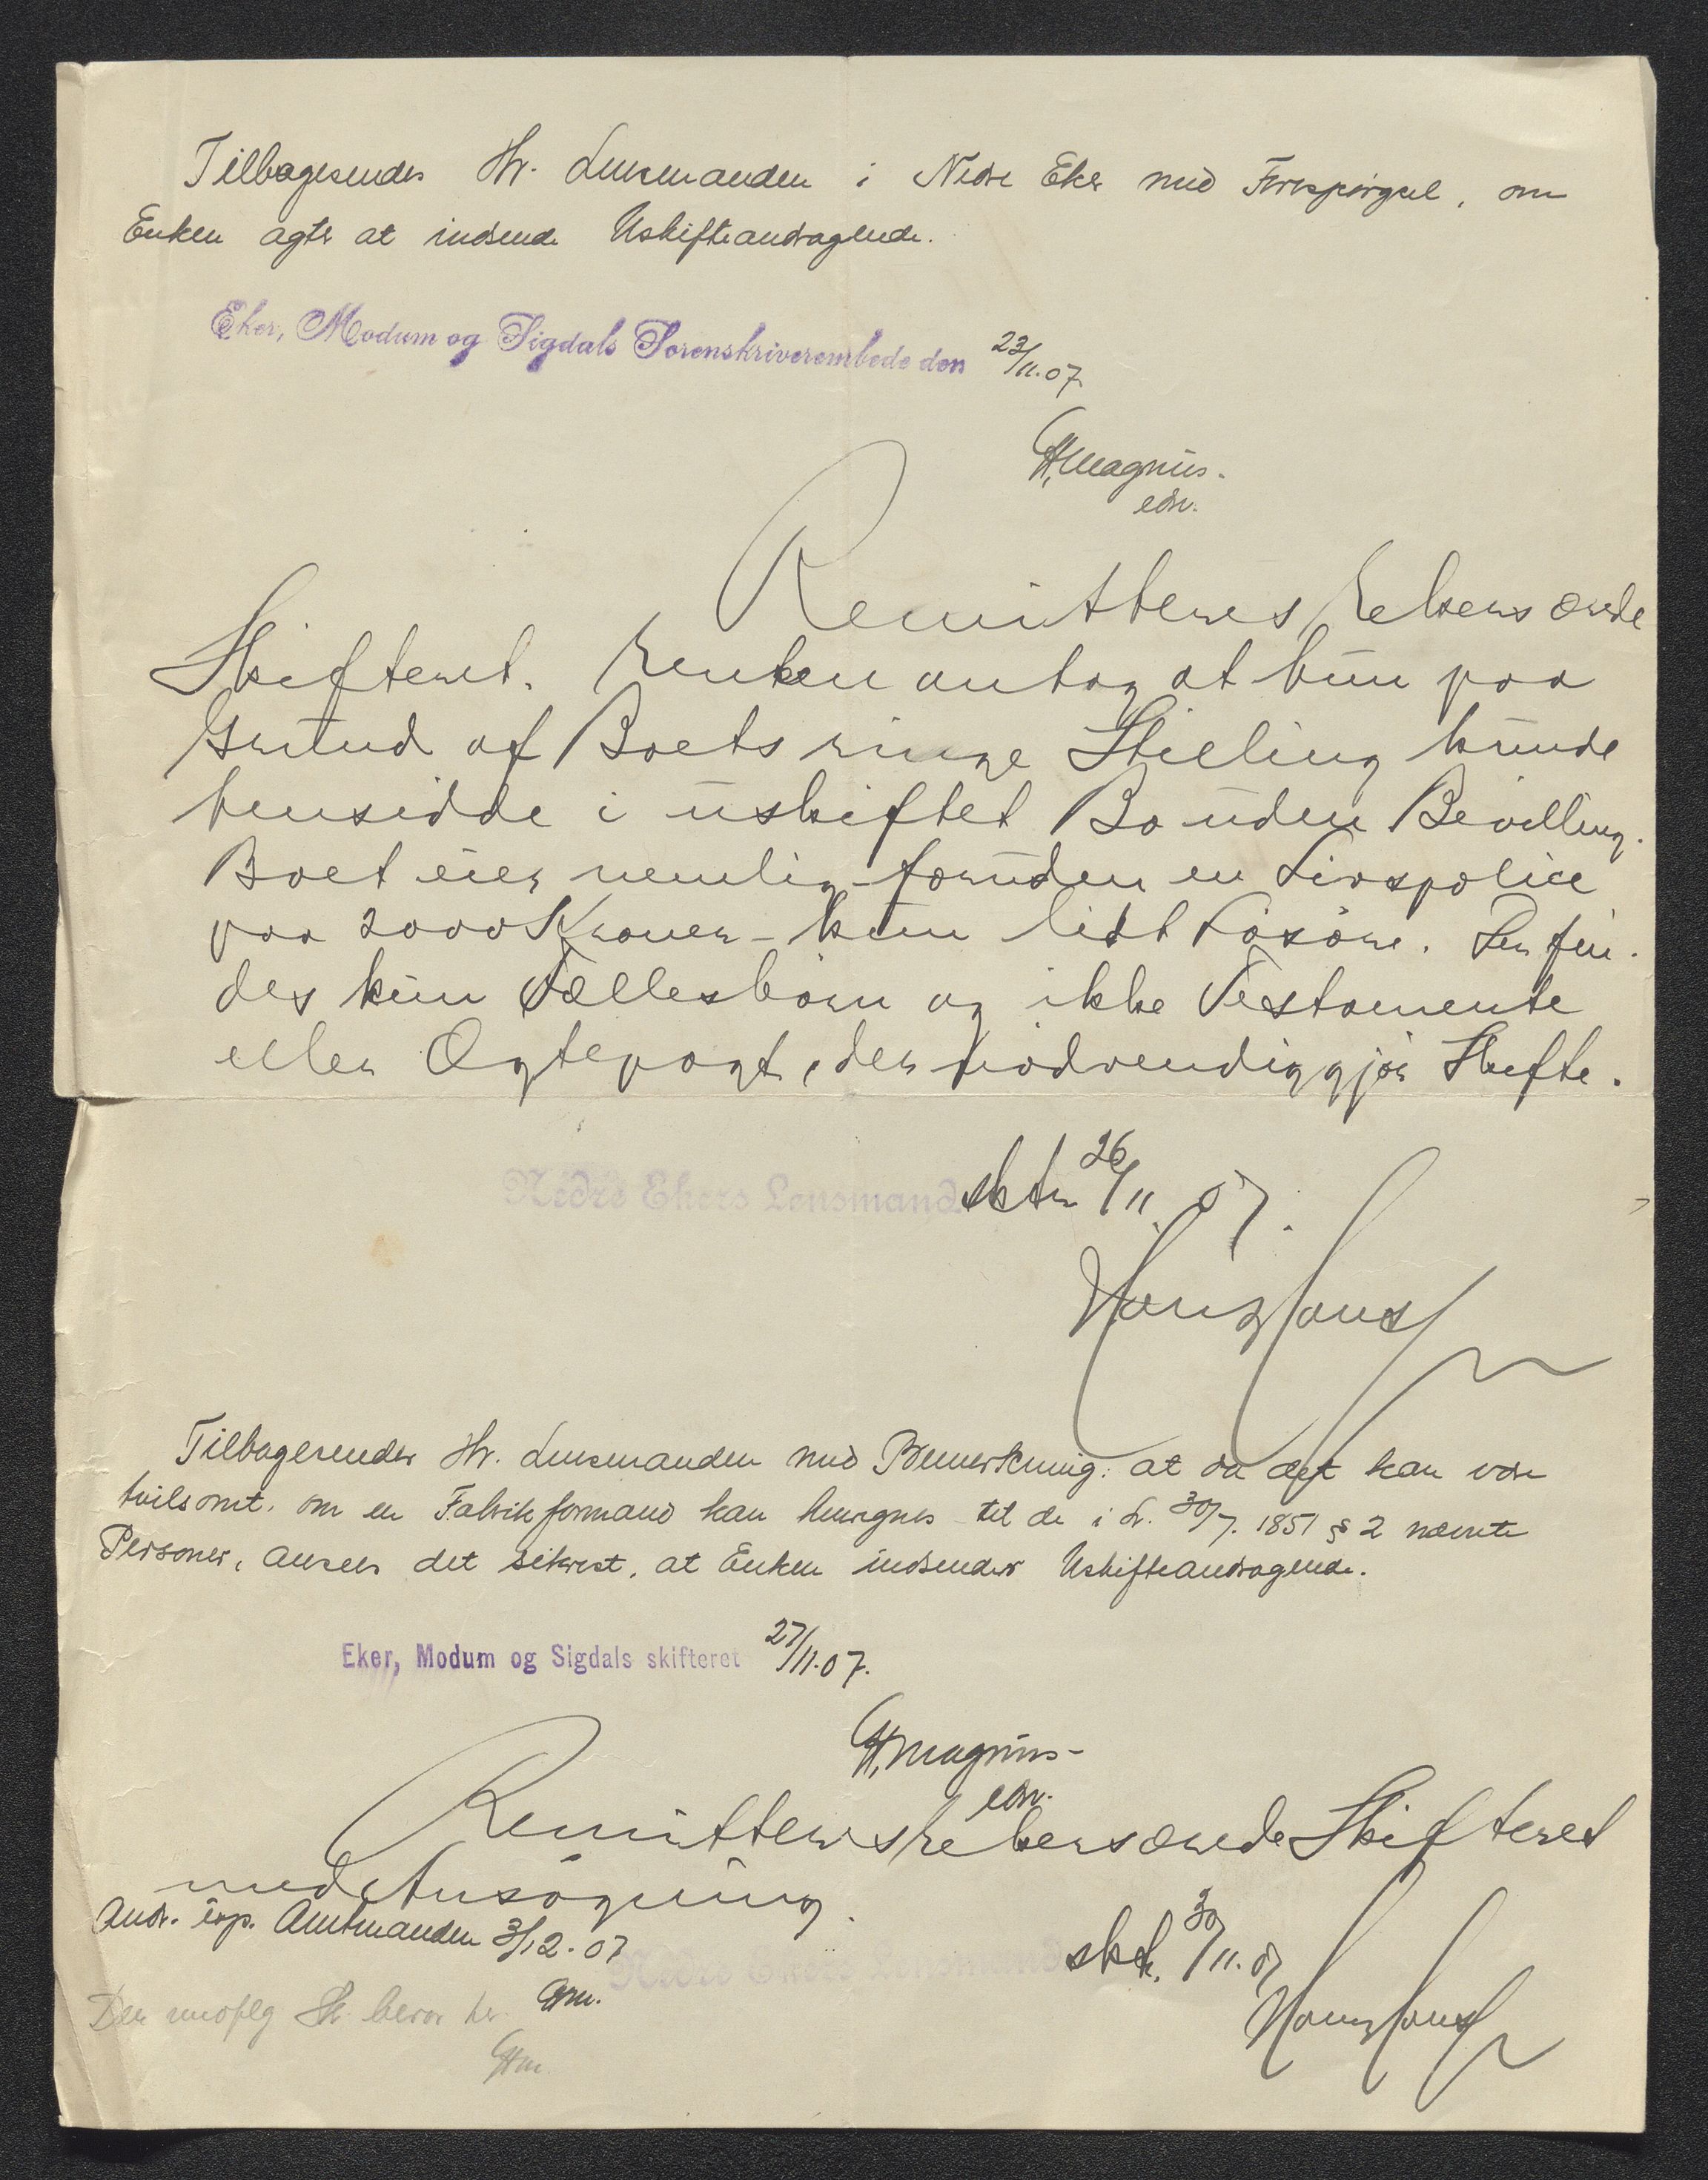 Tilbagesendes Hr. Lensmanden i Nedre Eker med Forespørgsel, om
Enken agter at indsende Uskifteandragende.
Eker, Modum og Sigdals Sorenskriverembede den 23/11.07
Magnus.
edsv.
Remitteres
Skifteret. Enken antog at hun paa
Grund af Boets ringe Stilling kunde
hensidde i uskiftet Bo uden Bevilling.
Boet eier nemlig - foruden en Livspolice
paa 2000 Kroner - kun lidt Løsøre. Der fin-
des kun Fællesbørn og ikke Testamente
eller Ægtepagt, der nødvendiggjør Skifte.
Nedre Ekers Lensmandsktr 26/11 07.
Tilbagesendes Hr. Lensmanden med Bemerkning: at da det kan være
tvilsomt, om en Fabrikformand kan henregnes til de i L. 30/7. 1851 § 2 nævnte
Personer, ansees det sikrest, at Enken indsender Uskifteandragende.
Eker, Modum og Sigdals skifteret 27/11.07.
Magnus
edsv.
Remitteres Skifteret
med Ansøgning.
Andr. exp. Amtmanden 3/12.07
Nedre Ekers Lensmandsktr. 30/11.07